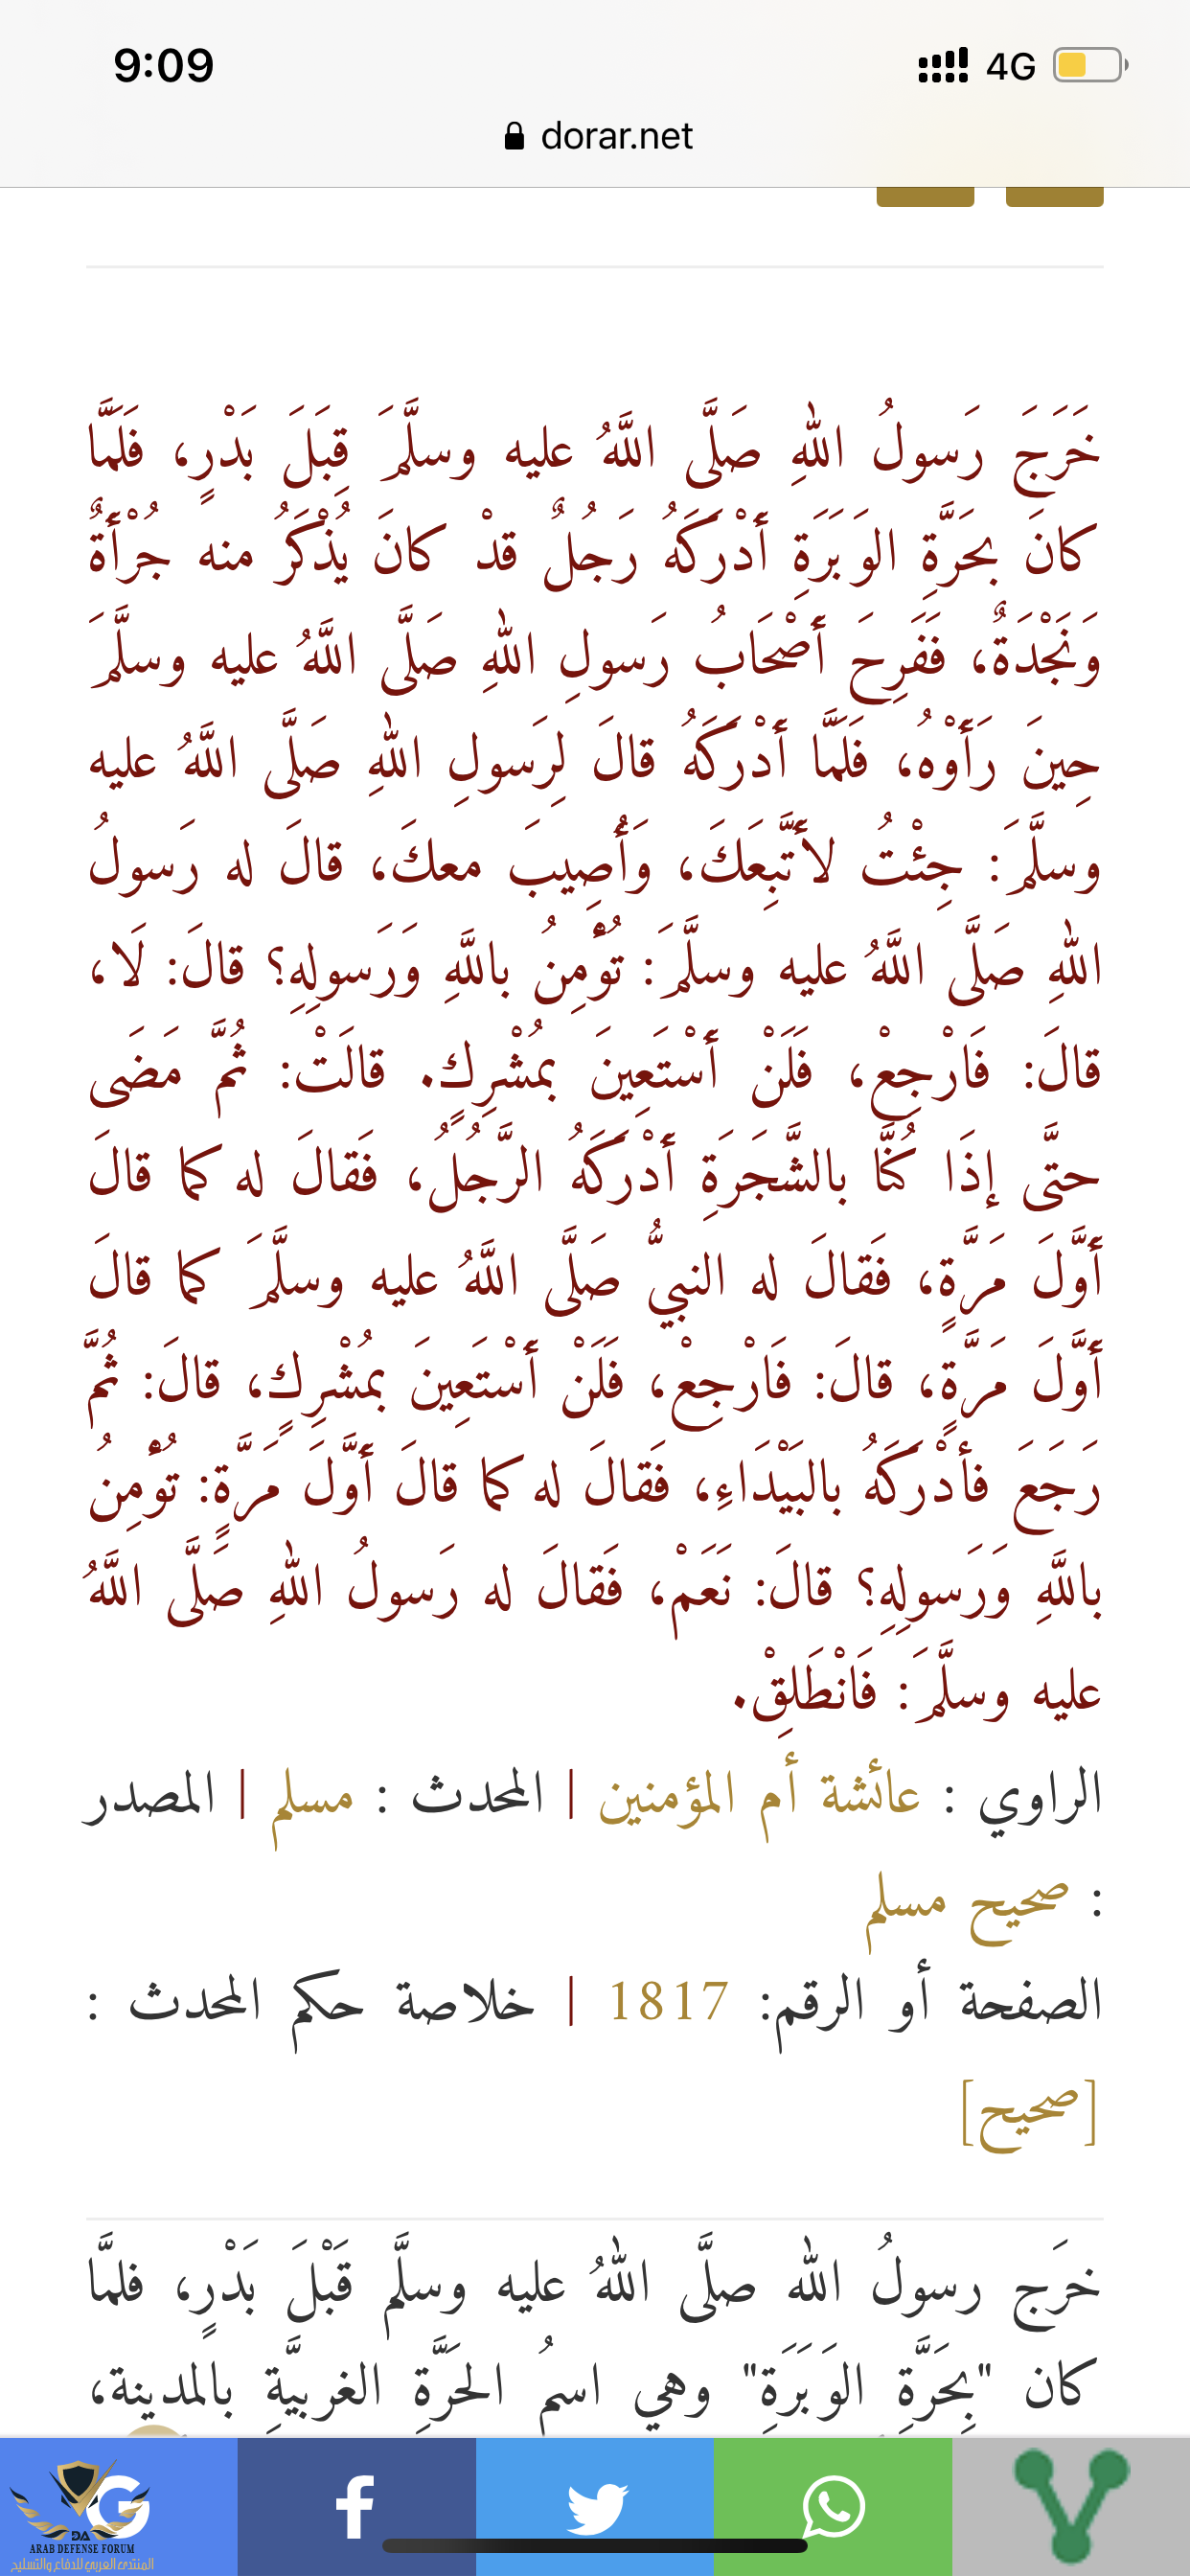 9:09
4G
dorar.net
خَرَجَ رَسولُ اللهِ صَلَّى اللَّهُ عليه وسلَّمَ قِبَلَ بَدْرٍ، فَلَمَّا
كانَ بحَرَّةِ الوَبَرَةِ أَدْرَكَهُ رَجُلٌ قدْ كانَ يُذْكَرُ منه جُرْأَةٌ
وَنَجْدَةٌ، فَفَرِحَ أَصْحَابُ رَسولِ اللهِ صَلَّى اللَّهُ عليه وسلَّمَ
حِينَ رَأَوْهُ، فَلَمَّا أَدْرَكَهُ قالَ لِرَسولِ اللهِ صَلَّى اللَّهُ عليه
وسلَّمَ: جِئْتُ لأَتَّبِعَكَ، وَأُصِيبَ معكَ، قالَ له رَسولُ
اللهِ صَلَّى اللَّهُ عليه وسلَّمَ: تُؤْمِنُ باللَّهِ وَرَسولِهِ؟ قالَ: لَا،
قالَ: فَارْجِعْ، فَلَنْ أَسْتَعِينَ بمُشْرِكٍ. قالَتْ: ثُمَّ مَضَى
حتَّى إذَا كُنَّا بالشَّجَرَةِ أَدْرَكَهُ الرَّجُلُ، فَقالَ له كما قالَ
أَوَّلَ مَرَّةٍ، فَقالَ له النبيُّ صَلَّى اللَّهُ عليه وسلَّمَ كما قالَ
أَوَّلَ مَرَّةٍ، قالَ: فَارْجِعْ، فَلَنْ أَسْتَعِينَ بمُشْرِكٍ، قالَ: ثُمَّ
رَجَعَ فأدْرَكَهُ بالبَيْدَاءِ، فَقالَ له كما قالَ أَوَّلَ مَرَّةٍ: تُؤْمِنُ
باللَّهِ وَرَسولِهِ؟ قالَ: نَعَمْ، فَقالَ له رَسولُ اللهِ صَلَّى اللَّهُ
عليه وسلَّمَ: فَانْطَلِقْ.
الراوي : عائشة أم المؤمنين | المحدث : مسلم | المصدر
: صحيح مسلم
الصفحة أو الرقم: 1817 | خلاصة حكم المحدث :
[صحيح]
خرَج رسولُ اللهِ صلَّى اللهُ عليه وسلَّم قَبْلَ بَدْرٍ، فلمَّا
كان "بِحَرَّةِ الوَبَرَةِ" وهي اسمُ الحَرَّةِ الغربيَّةِ بالمدينة،
DA
ARAB DEFENSE FORUM
المنتدى العربي للدفاع والتسليح